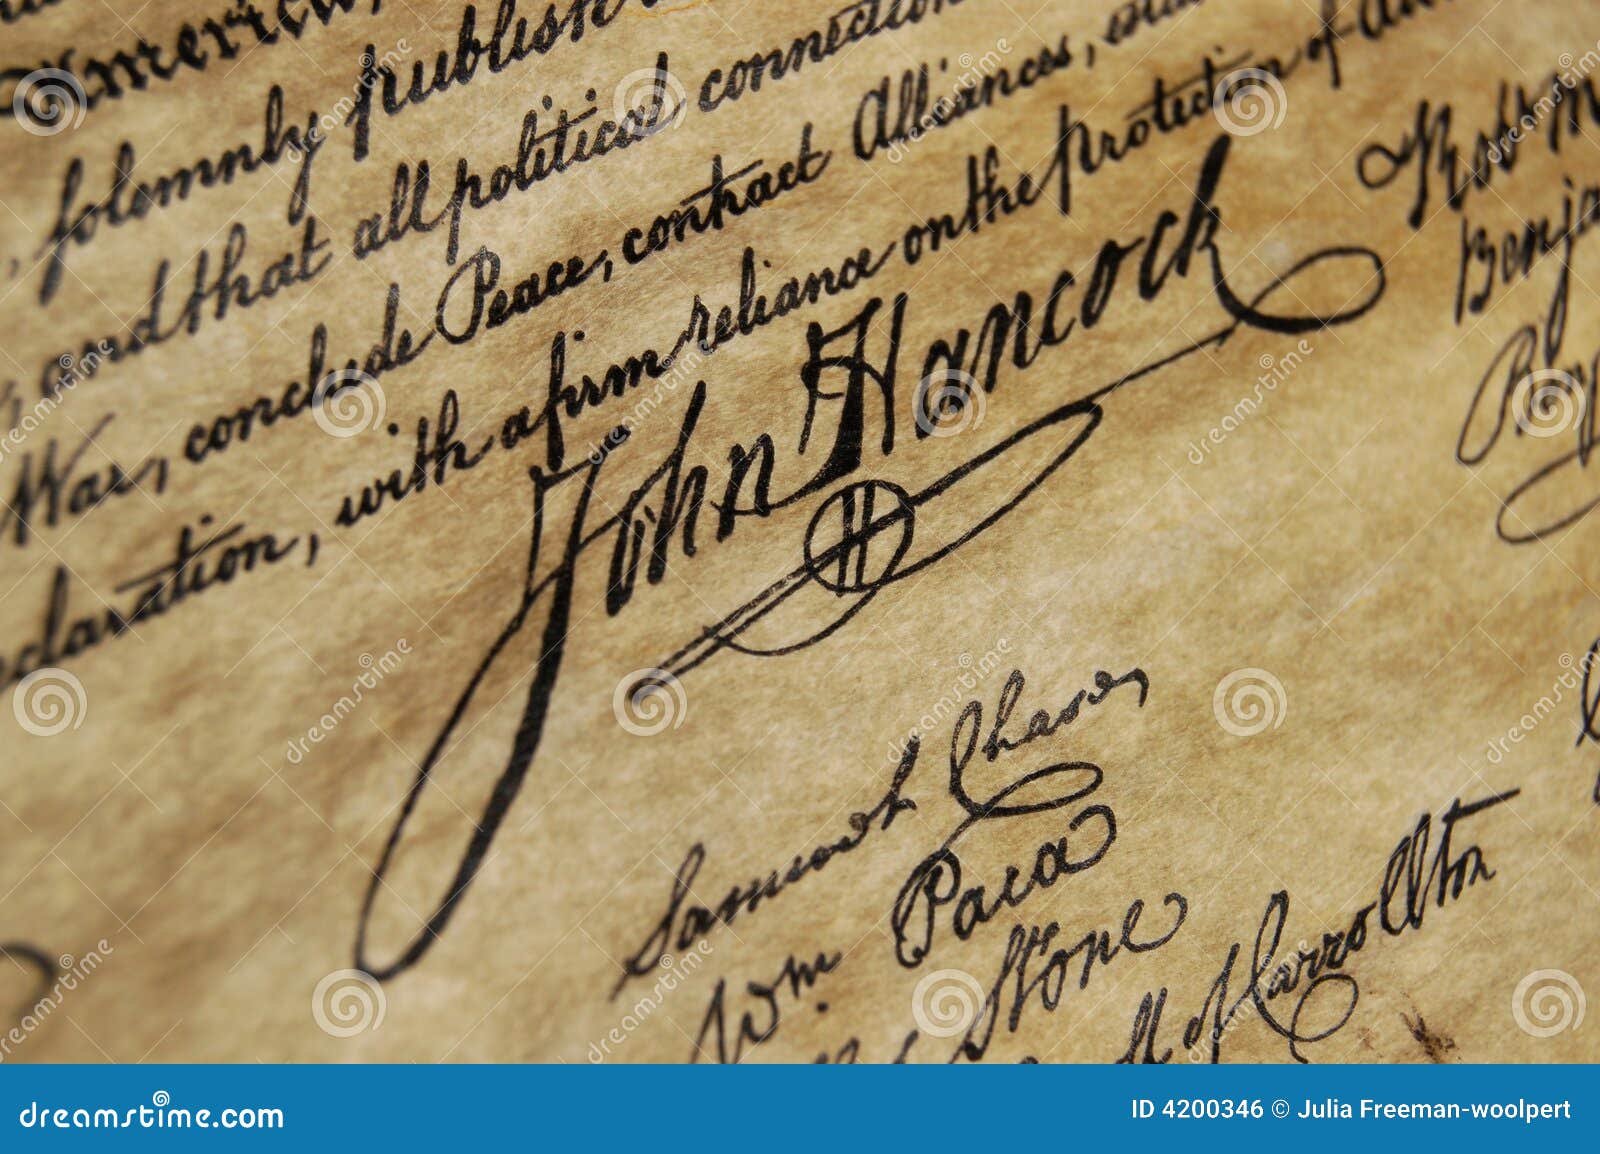 America,
, solemnly publish
, and that all political connection
War, conclude Peace, contract Alliances,
claration, with a firm reliance on the protection of
John Hancock
Rob
Benja
Samuel Chase,
Wm. Paca
Stone
of Carrollton
dreamstime.com
ID 4200346 © Julia Freeman-woolpert